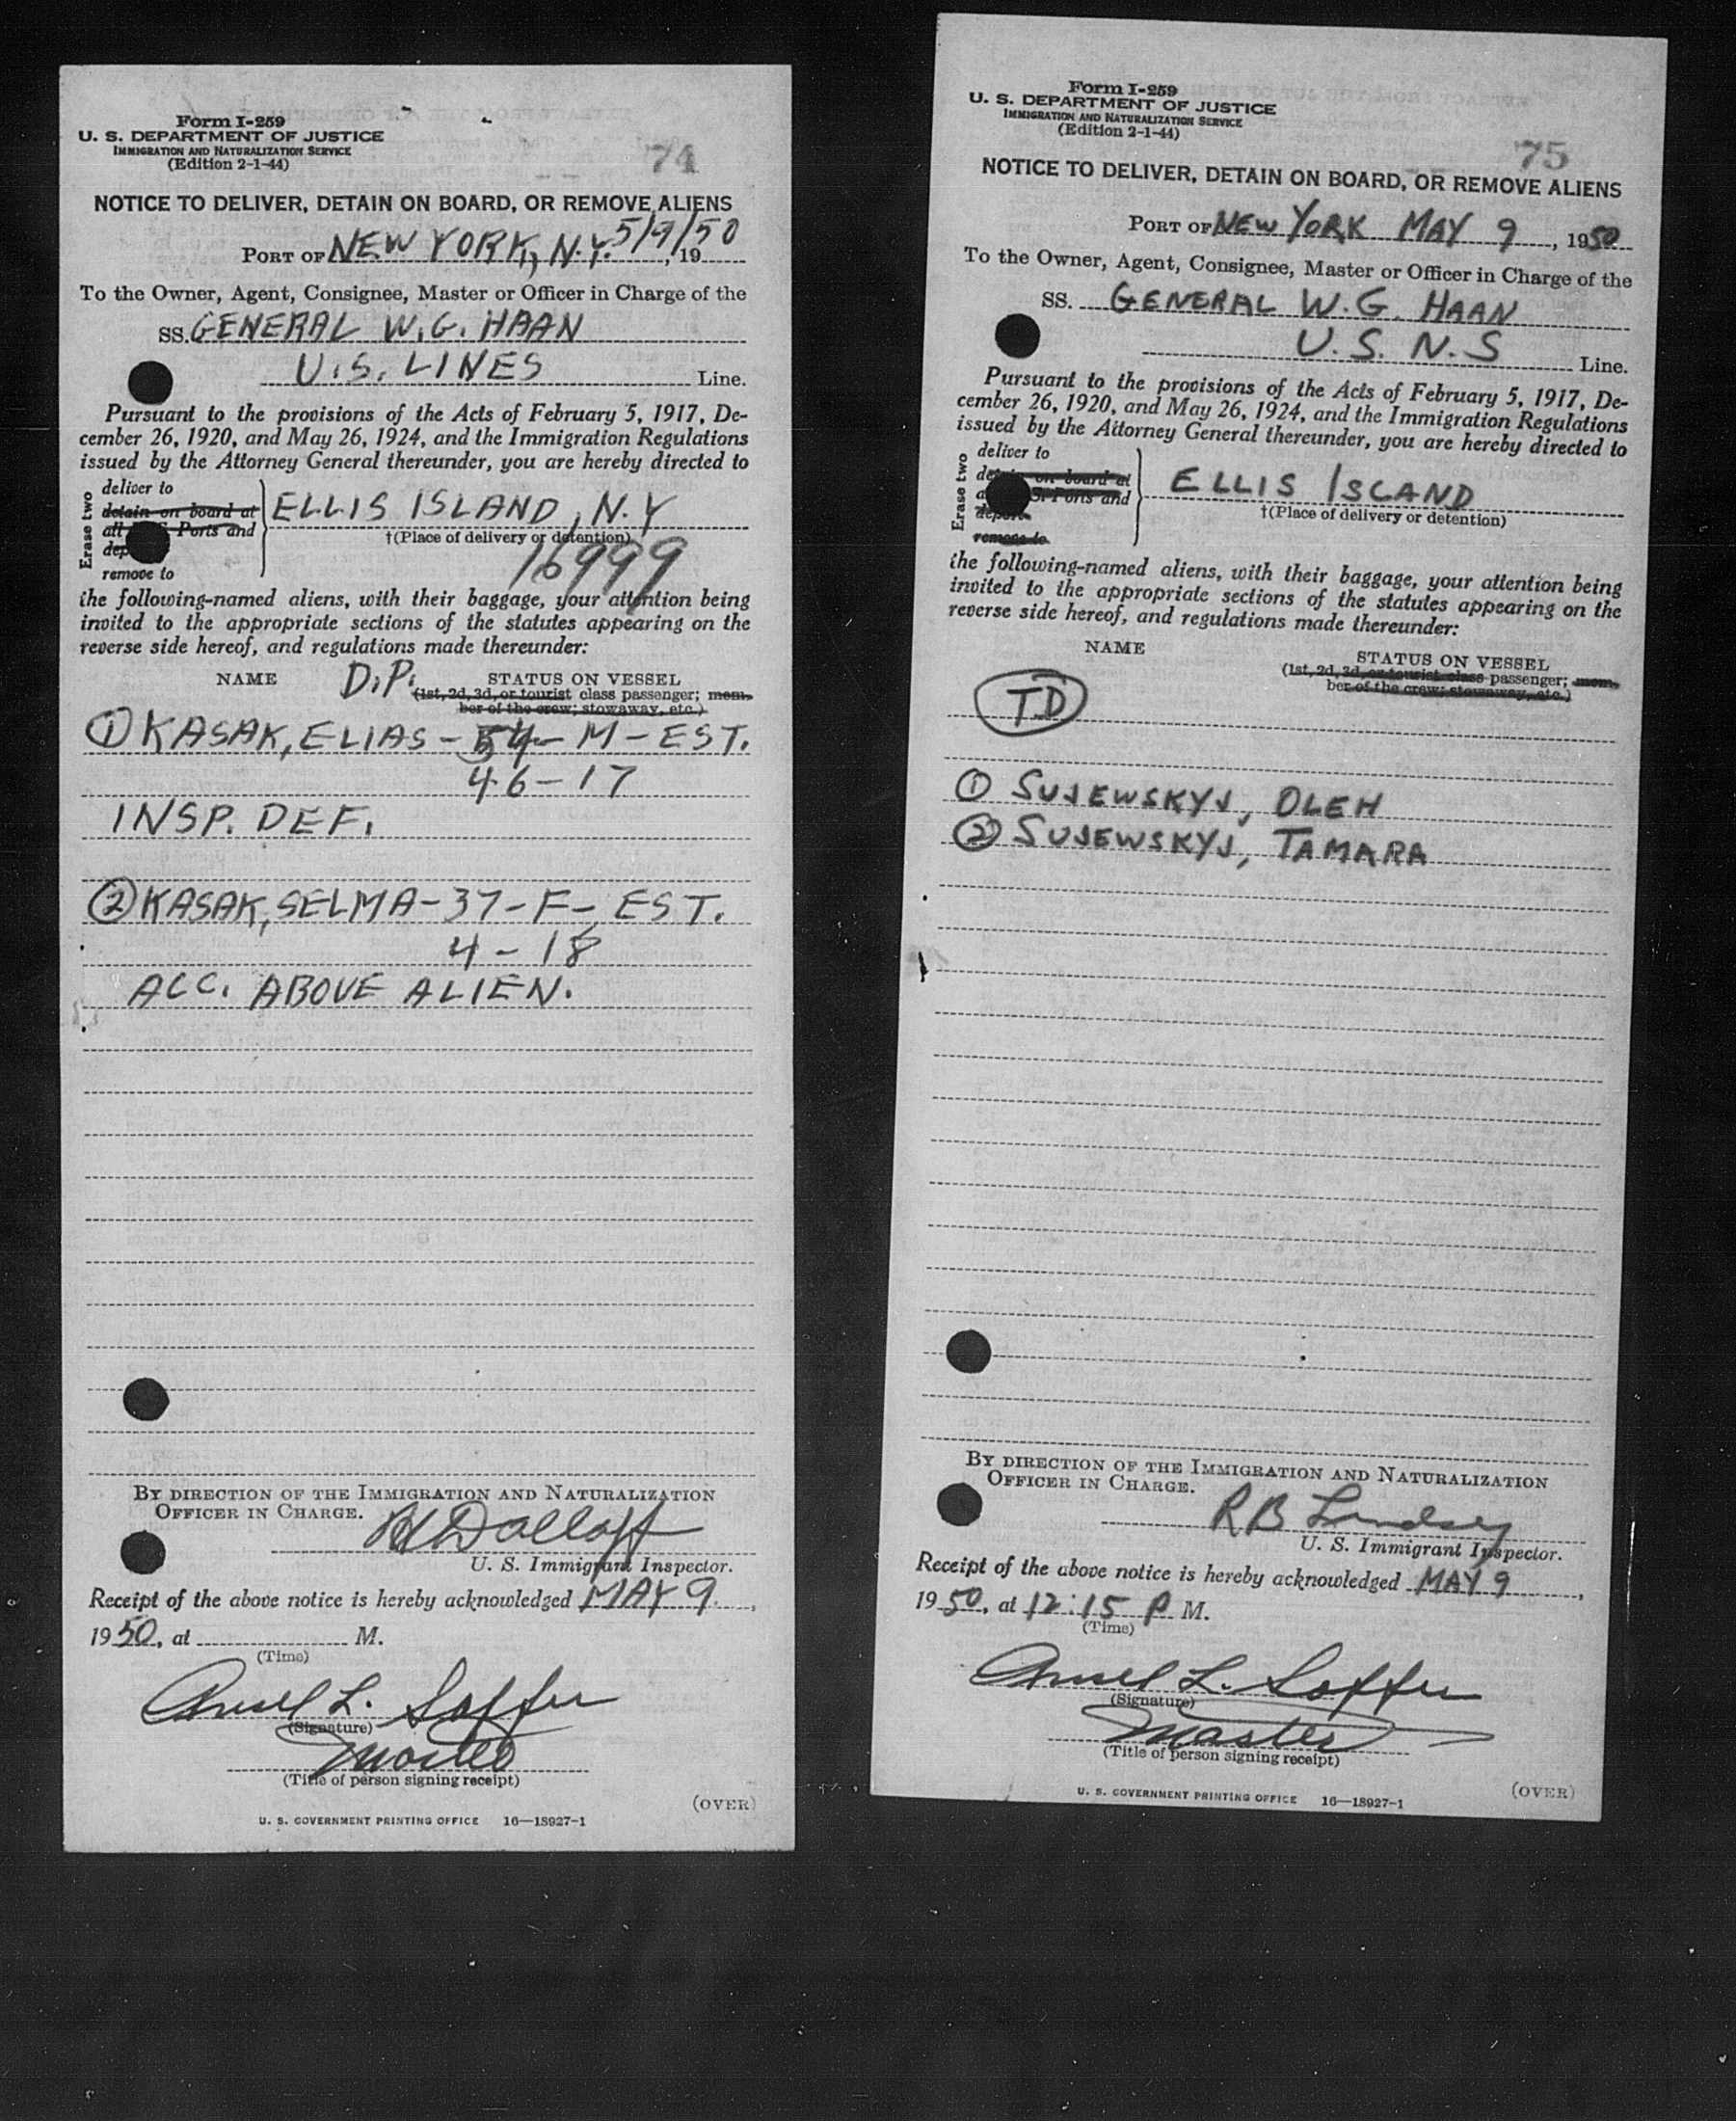 Form I-259
U. S. DEPARTMENT OF JUSTICE
IMMIGRATION AND NATURALIZATION SERVICE
(Edition 2-1-44)
74
NOTICE TO DELIVER, DETAIN ON BOARD, OR REMOVE ALIENS
PORT OF NEW YORK, N.Y. 5/9/50, 19
To the Owner, Agent, Consignee, Master or Officer in Charge of the
SS. GENERAL W.G. HAAN
U.S. LINES Line.
Pursuant to the provisions of the Acts of February 5, 1917, De-
cember 26, 1920, and May 26, 1924, and the Immigration Regulations
issued by the Attorney General thereunder, you are hereby directed to
Erase two
deliver to
detain on board at
all Ports and
dep
remove to
ELLIS ISLAND, N.Y
†(Place of delivery or detention)
16999
the following-named aliens, with their baggage, your attention being
invited to the appropriate sections of the statutes appearing on the
reverse side hereof, and regulations made thereunder:
NAME D.P. STATUS ON VESSEL
(1st, 2d, 3d, or tourist class passenger; mem-
ber of the crew; stowaway, etc.)
① KASAK, ELIAS - 54 - M - EST.
46-17
INSP. DEF.
② KASAK, SELMA - 37 - F - EST.
4-18
ACC. ABOVE ALIEN.
BY DIRECTION OF THE IMMIGRATION AND NATURALIZATION
OFFICER IN CHARGE.
U. S. Immigrant Inspector.
Receipt of the above notice is hereby acknowledged MAY 9,
1950, at M.
(Time)
L. Soffer
(Signature)
Master
(Title of person signing receipt)
(OVER)
U. S. GOVERNMENT PRINTING OFFICE 16—18927-1
Form I-259
U. S. DEPARTMENT OF JUSTICE
IMMIGRATION AND NATURALIZATION SERVICE
(Edition 2-1-44)
75
NOTICE TO DELIVER, DETAIN ON BOARD, OR REMOVE ALIENS
PORT OF NEW YORK MAY 9, 1950
To the Owner, Agent, Consignee, Master or Officer in Charge of the
SS. GENERAL W.G. HAAN
U.S.N.S Line.
Pursuant to the provisions of the Acts of February 5, 1917, De-
cember 26, 1920, and May 26, 1924, and the Immigration Regulations
issued by the Attorney General thereunder, you are hereby directed to
Erase two
deliver to
on board at
S. Ports and
remove to
ELLIS ISLAND
†(Place of delivery or detention)
the following-named aliens, with their baggage, your attention being
invited to the appropriate sections of the statutes appearing on the
reverse side hereof, and regulations made thereunder:
NAME STATUS ON VESSEL
(1st, 2d, 3d, or tourist class passenger; mem-
ber of the crew; stowaway, etc.)
TD
① SUJEWSKYJ, OLEH
② SUJEWSKYJ, TAMARA
BY DIRECTION OF THE IMMIGRATION AND NATURALIZATION
OFFICER IN CHARGE.
RB Lindsey
U. S. Immigrant Inspector.
Receipt of the above notice is hereby acknowledged MAY 9,
1950, at 12:15 P M.
(Time)
L. Soffer
(Signature)
Master
(Title of person signing receipt)
(OVER)
U. S. GOVERNMENT PRINTING OFFICE 16—18927-1